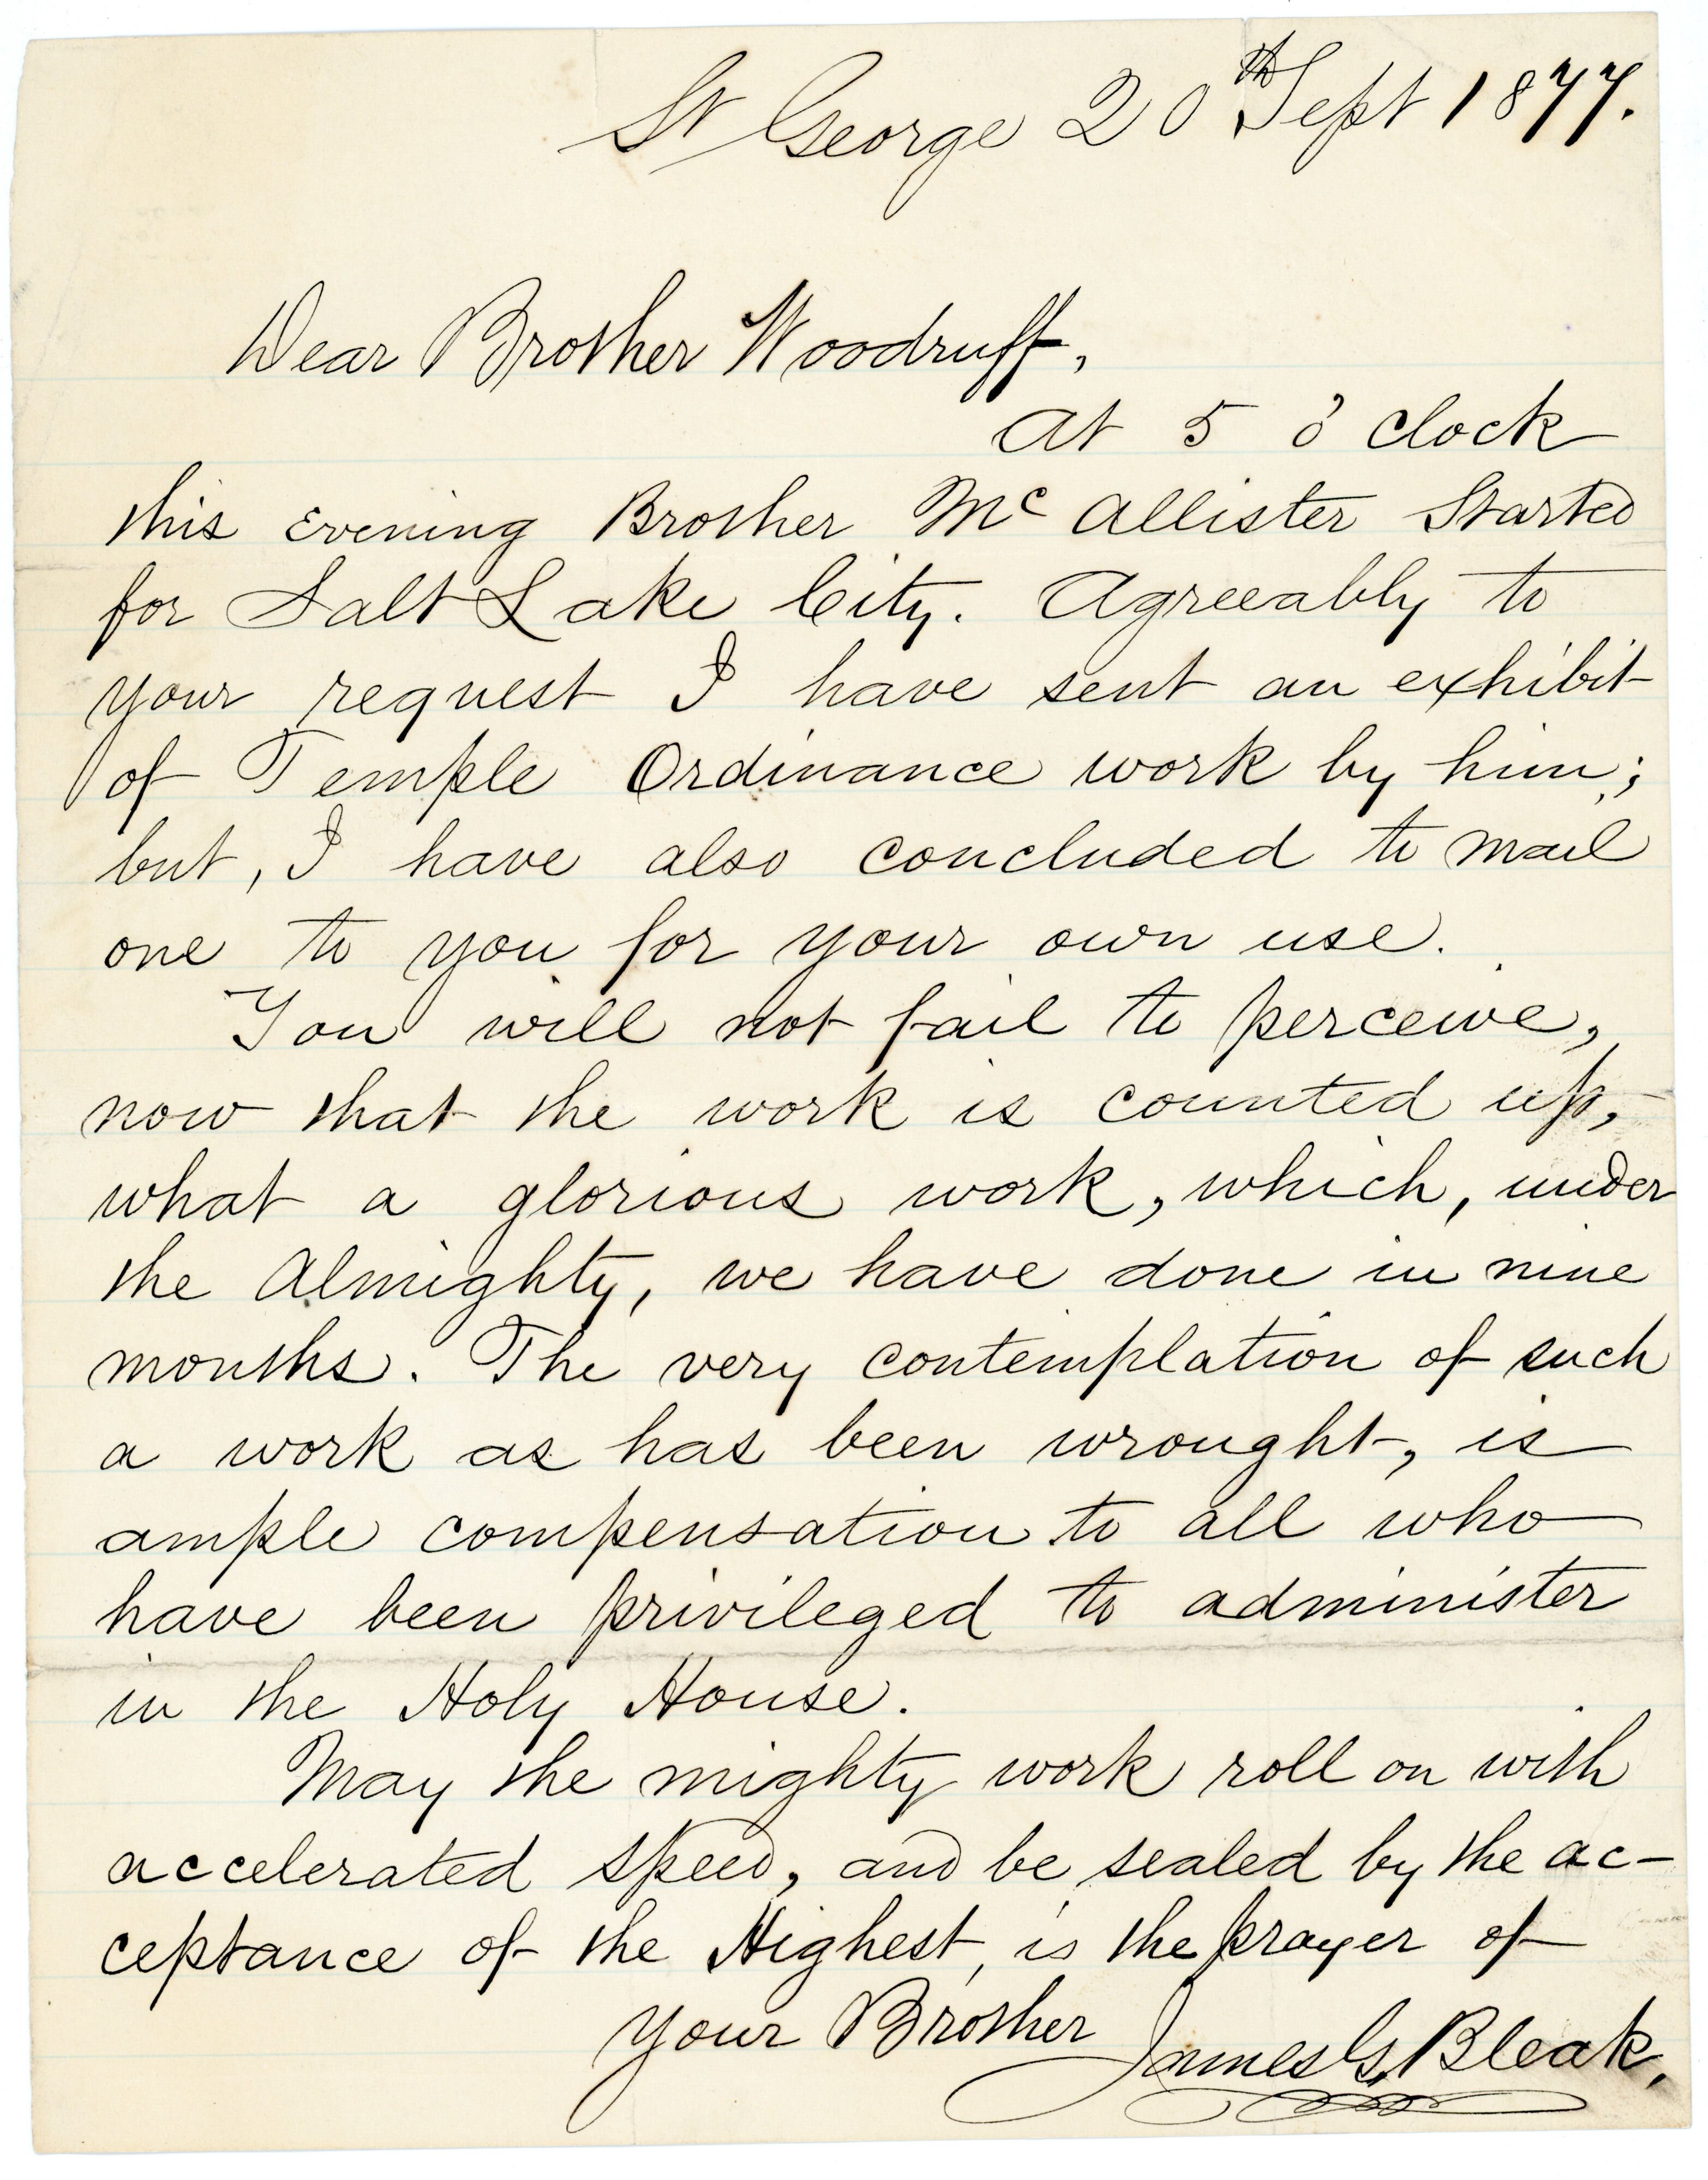 St George 20th Sept 1877.
Dear Brother Woodruff,
At 5 o'clock
this Evening Brother Mc Allister Started
for Salt Lake City. Agreeably to
your request I have sent an exhibit
of Temple Ordinance work by him;
but, I have also concluded to mail
one to you for your own use.
You will not fail to perceive,
now that the work is counted up,
what a glorious work, which, under
the Almighty, we have done in nine
months. The very contemplation of such
a work as has been wrought, is
ample compensation to all who
have been privileged to administer
in the Holy House.
May the mighty work roll on with
accelerated speed, and be sealed by the ac-
ceptance of the Highest, is the prayer of
your Brother James G. Bleak.